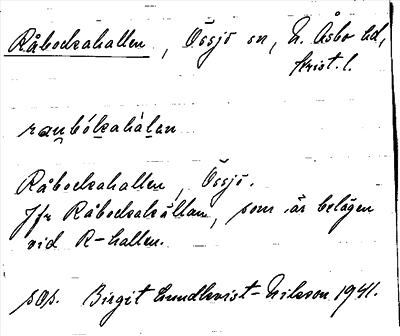 Råbockahallen, Össjö sn, N. Åsbo hd,
Krist. l.
raubókahálan
Råbockahallen, Össjö.
Jfr Råbockakällan, som är belägen
vid R-hallen.
sOs. Birgit Lundkvist-Nilsson 1941.